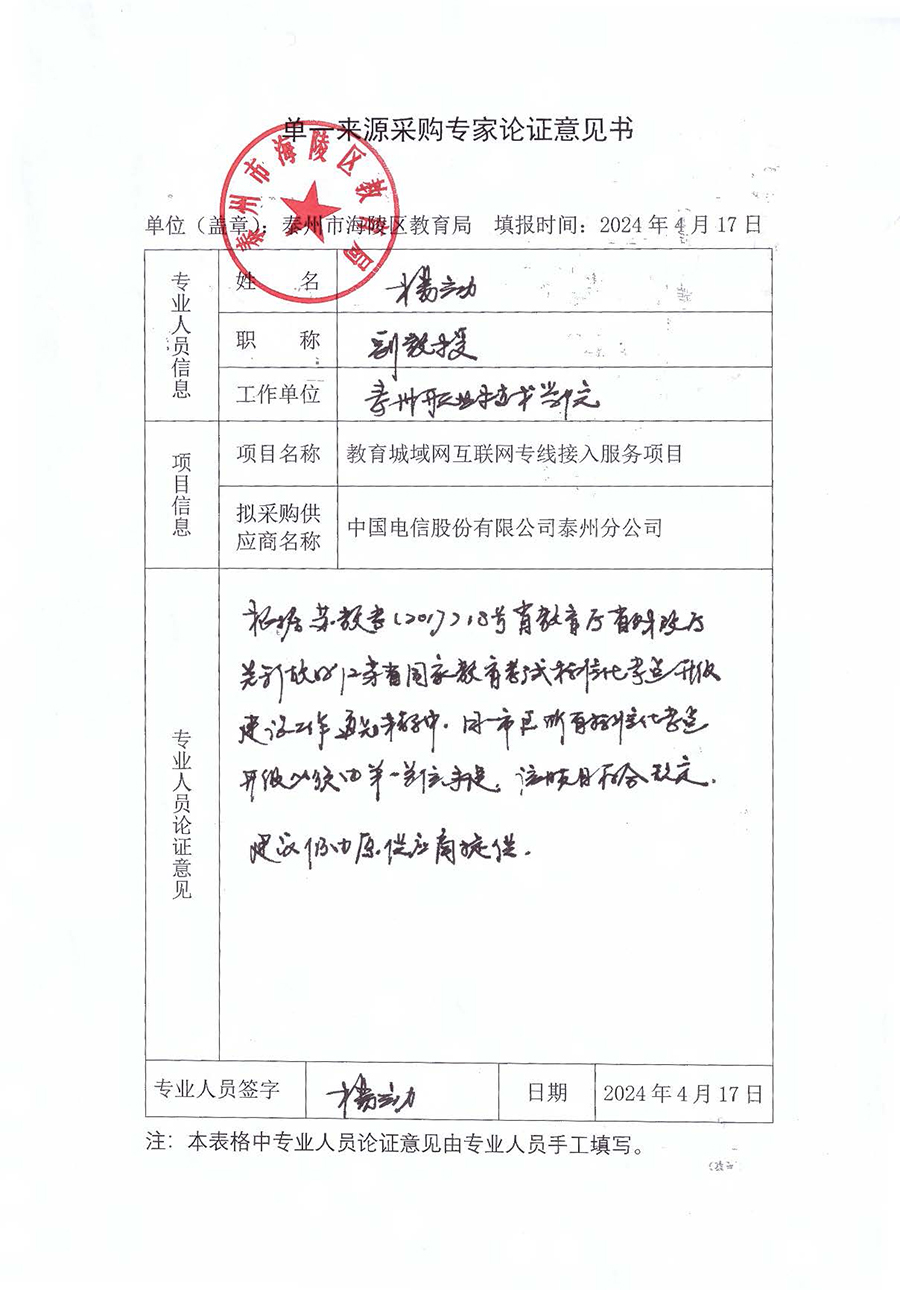 单一来源采购专家论证意见书
泰州市海陵区教育局
单位（盖章）：泰州市海陵区教育局 填报时间：2024年4月17日
专业人员信息
姓 名 杨立功
职 称 副教授
工作单位 泰州职业技术学院
项目信息
项目名称 教育城域网互联网专线接入服务项目
拟采购供应商名称 中国电信股份有限公司泰州分公司
专业人员论证意见
根据苏教考(2017)18号省教育厅省财政厅
关于做好江苏省国家教育考试标准化考点升级
建设工作通知精神，同一市区所有标准化考点
升级必须由单一单位承建，该项目符合规定。
建议仍由原供应商提供。
专业人员签字 杨立功 日期 2024年4月17日
注：本表格中专业人员论证意见由专业人员手工填写。